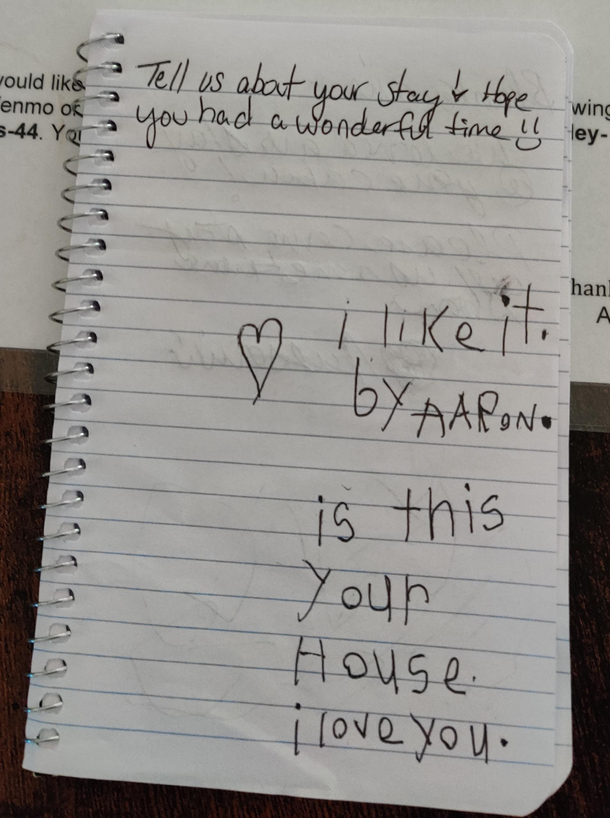 Tell us about your stay ↓ Hope
you had a wonderful time !!
i like it.
by AARON.
is this
your
House.
i love you.
ould like
enmo or
s-44. You
wing
ley-
hank
A